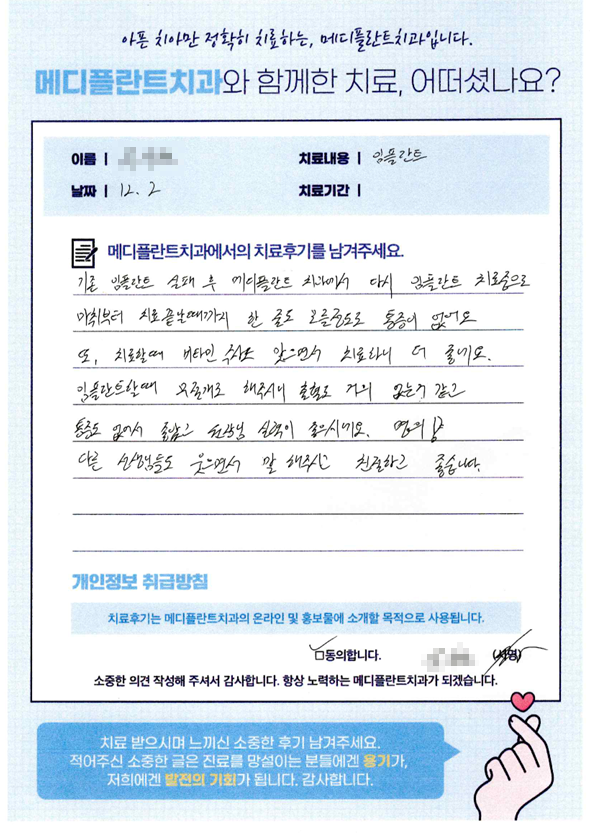 아픈 치아만 정확히 치료하는, 메디플란트치과입니다.
메디플란트치과와 함께한 치료, 어떠셨나요?
이름 |
치료내용 | 임플란트
날짜 | 12. 2
치료기간 |
메디플란트치과에서의 치료후기를 남겨주세요.
기존 임플란트 실패 후 메디플란트 치과에서 다시 임플란트 치료중으로
마취부터 치료끝날때까지 한 줄도 모를정도로 통증이 없어요
또, 치료할때 비타민 주사도 맞으면서 치료하니 더 좋네요.
임플란트할때 무절개로 해주시니 출혈도 거의 없는거 같고
통증도 없어서 좋았고 선생님 실력이 좋으시네요. 명의
다른 선생님들도 웃으면서 말 해주시고 친절하고 좋습니다.
개인정보 취급방침
치료후기는 메디플란트치과의 온라인 및 홍보물에 소개할 목적으로 사용됩니다.
동의합니다. (서명)
소중한 의견 작성해 주셔서 감사합니다. 항상 노력하는 메디플란트치과가 되겠습니다.
치료 받으시며 느끼신 소중한 후기 남겨주세요.
적어주신 소중한 글은 진료를 망설이는 분들에겐 용기가,
저희에겐 발전의 기회가 됩니다. 감사합니다.